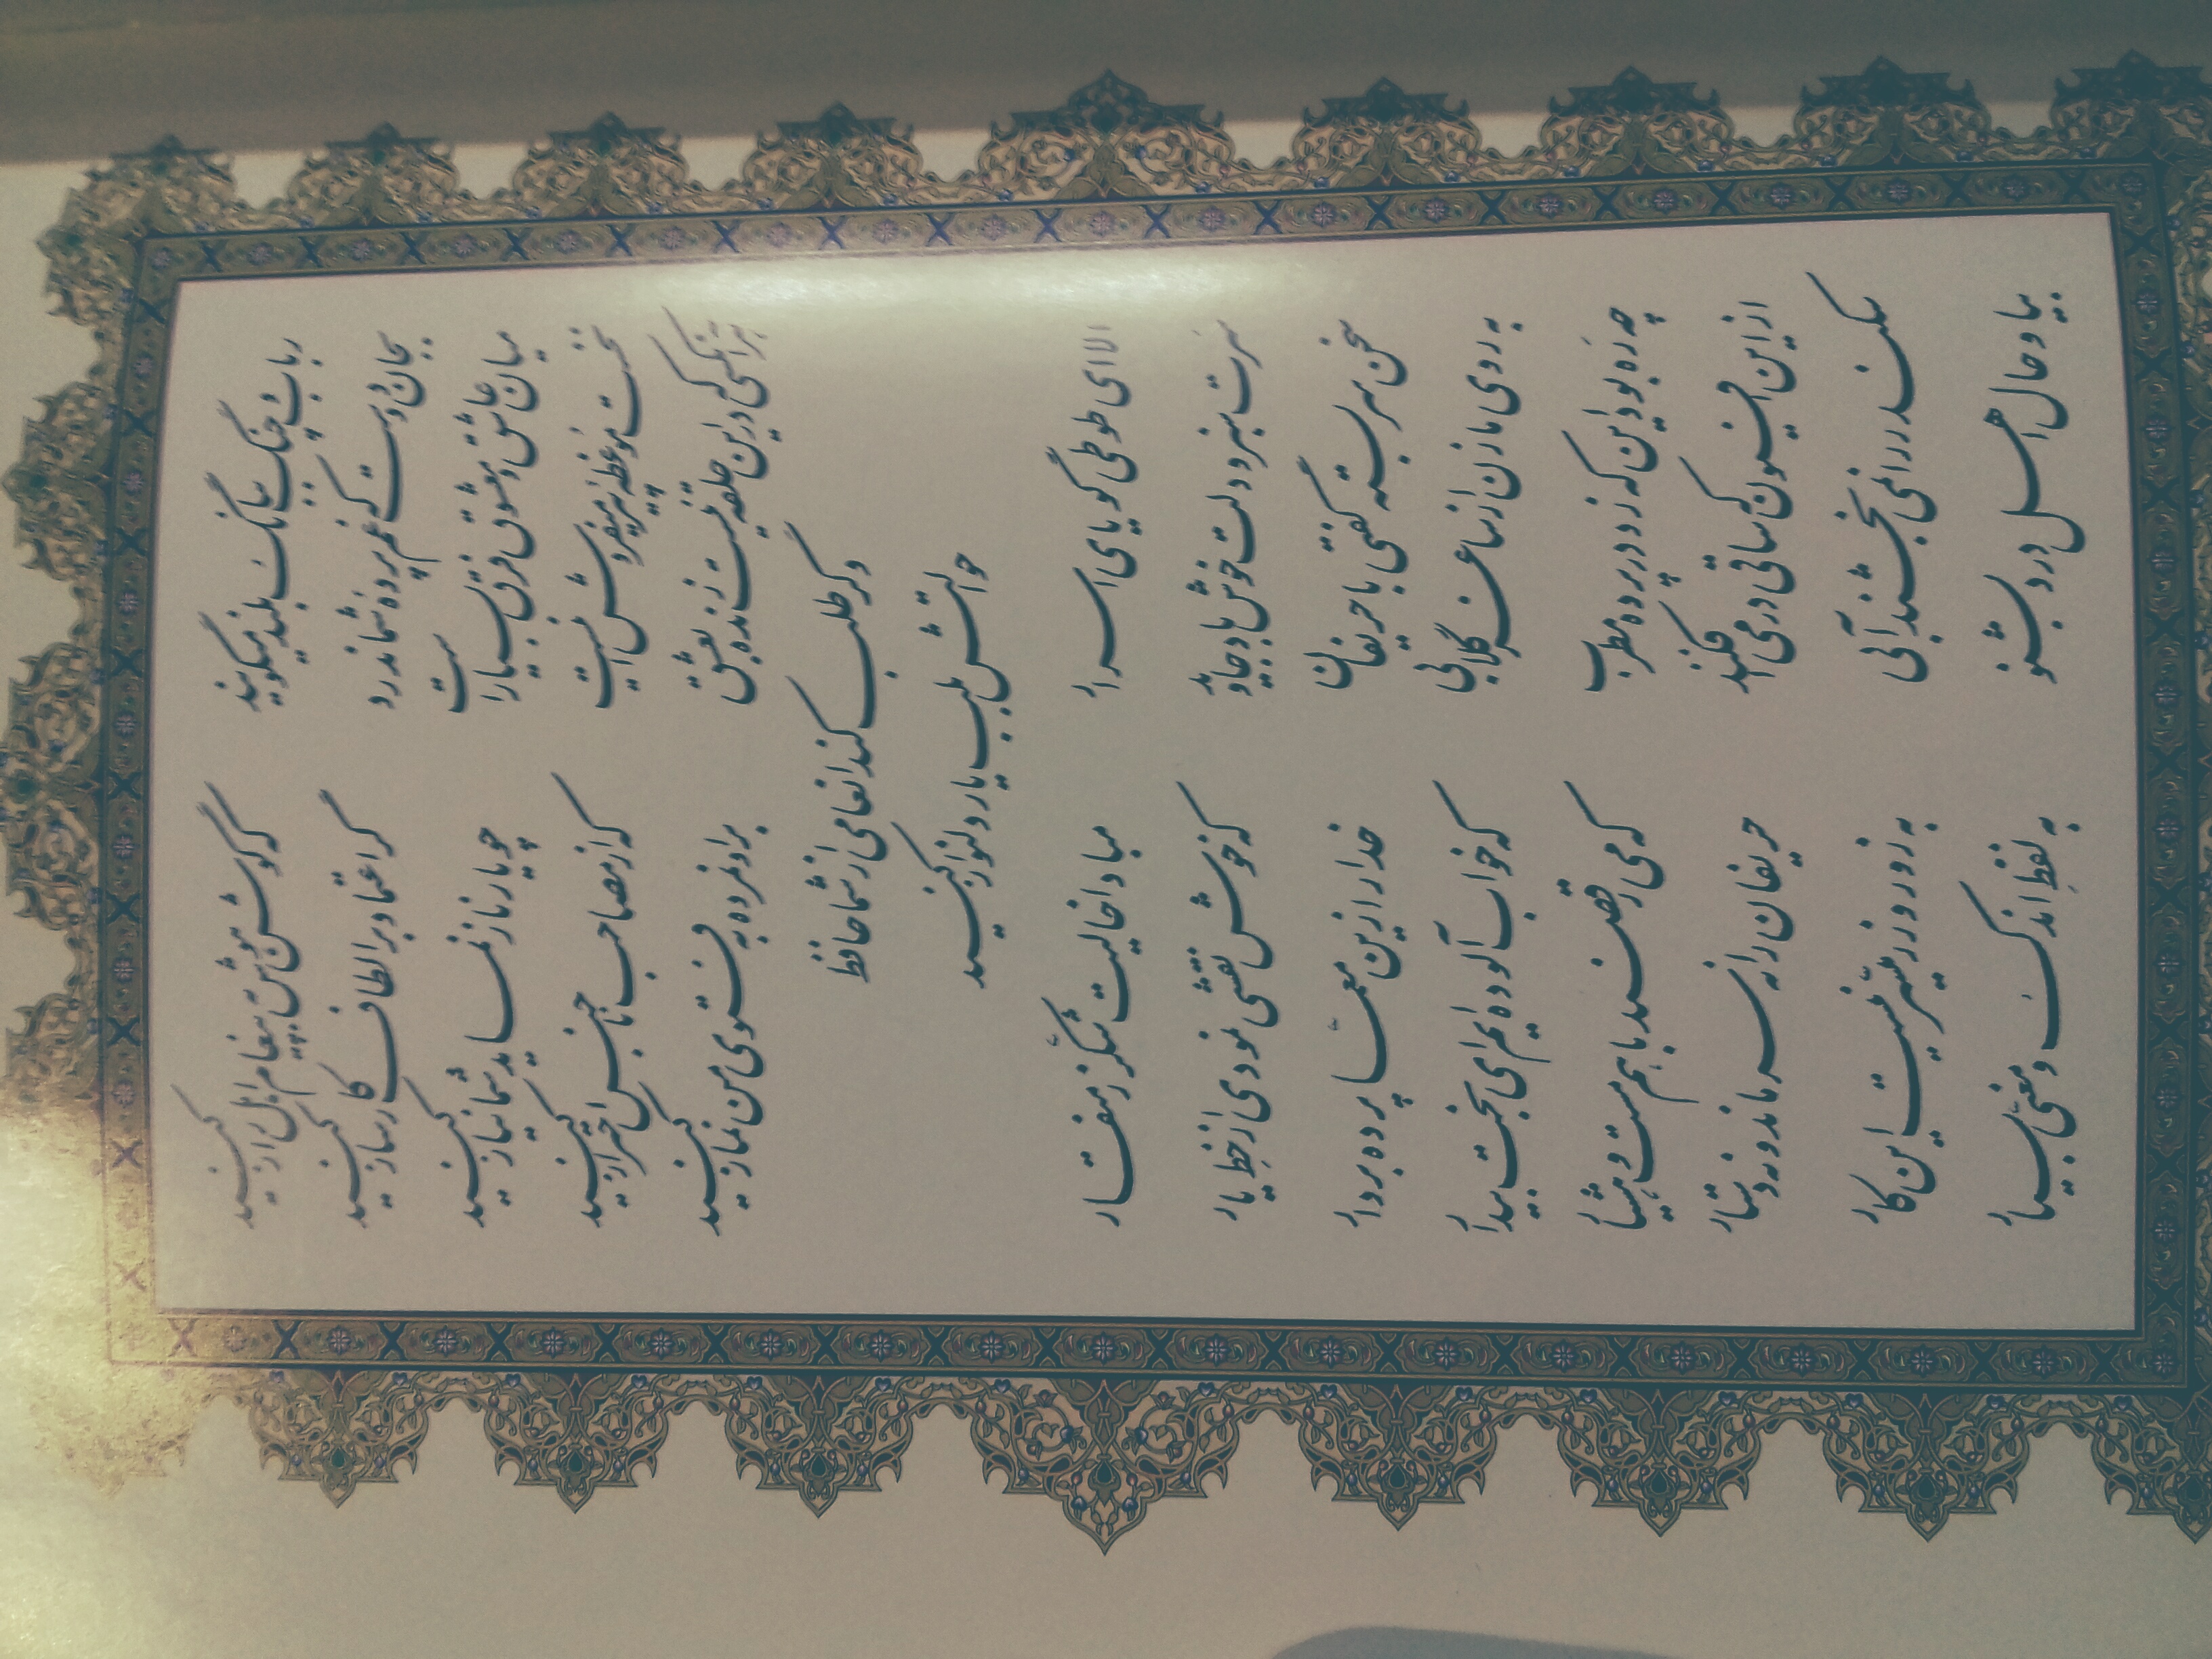 رباب و چنگ ببانگ بلند میگویند که گوش هوش به پیغام اهل راز کنید
بجان دوست که غم پرده شما ندرد گر اعتماد بر الطاف کارساز کنید
میان عاشق و معشوق فرق بسیار است چو یار ناز نماید شما نیاز کنید
نخست موعظهٔ پیر میفروش اینست که از مصاحب ناجنس احتراز کنید
هر آنکسی که در این حلقه نیست زنده بعشق بر او نمرده به فتوی من نماز کنید
وگر طلب کند انعامی از شما حافظ
حوالتش بلب یار دلنواز کنید
الا ای طوطی گویای اسرار مبادا خالیت شکّر ز منقار
سرت سبز و دلت خوش باد جاوید که خوش نقشی نمودی از خطِ یار
سخن سربسته گفتی با حریفان خدا را زین معمّا پرده بردار
به روی ما زن از ساغر گلابی که خواب آلوده ایم ای بخت بیدار
چه ره بود این که زد در پرده مطرب که می رقصند با هم مست و هشیار
از این افیون که ساقی در می افکند حریفان را نه سر ماند و نه دستار
سکندر را نمی بخشند آبی به زور و زر میسّر نیست این کار
بیا و حال اهل درد بشنو به لفظِ اندک و معنیّ بسیار